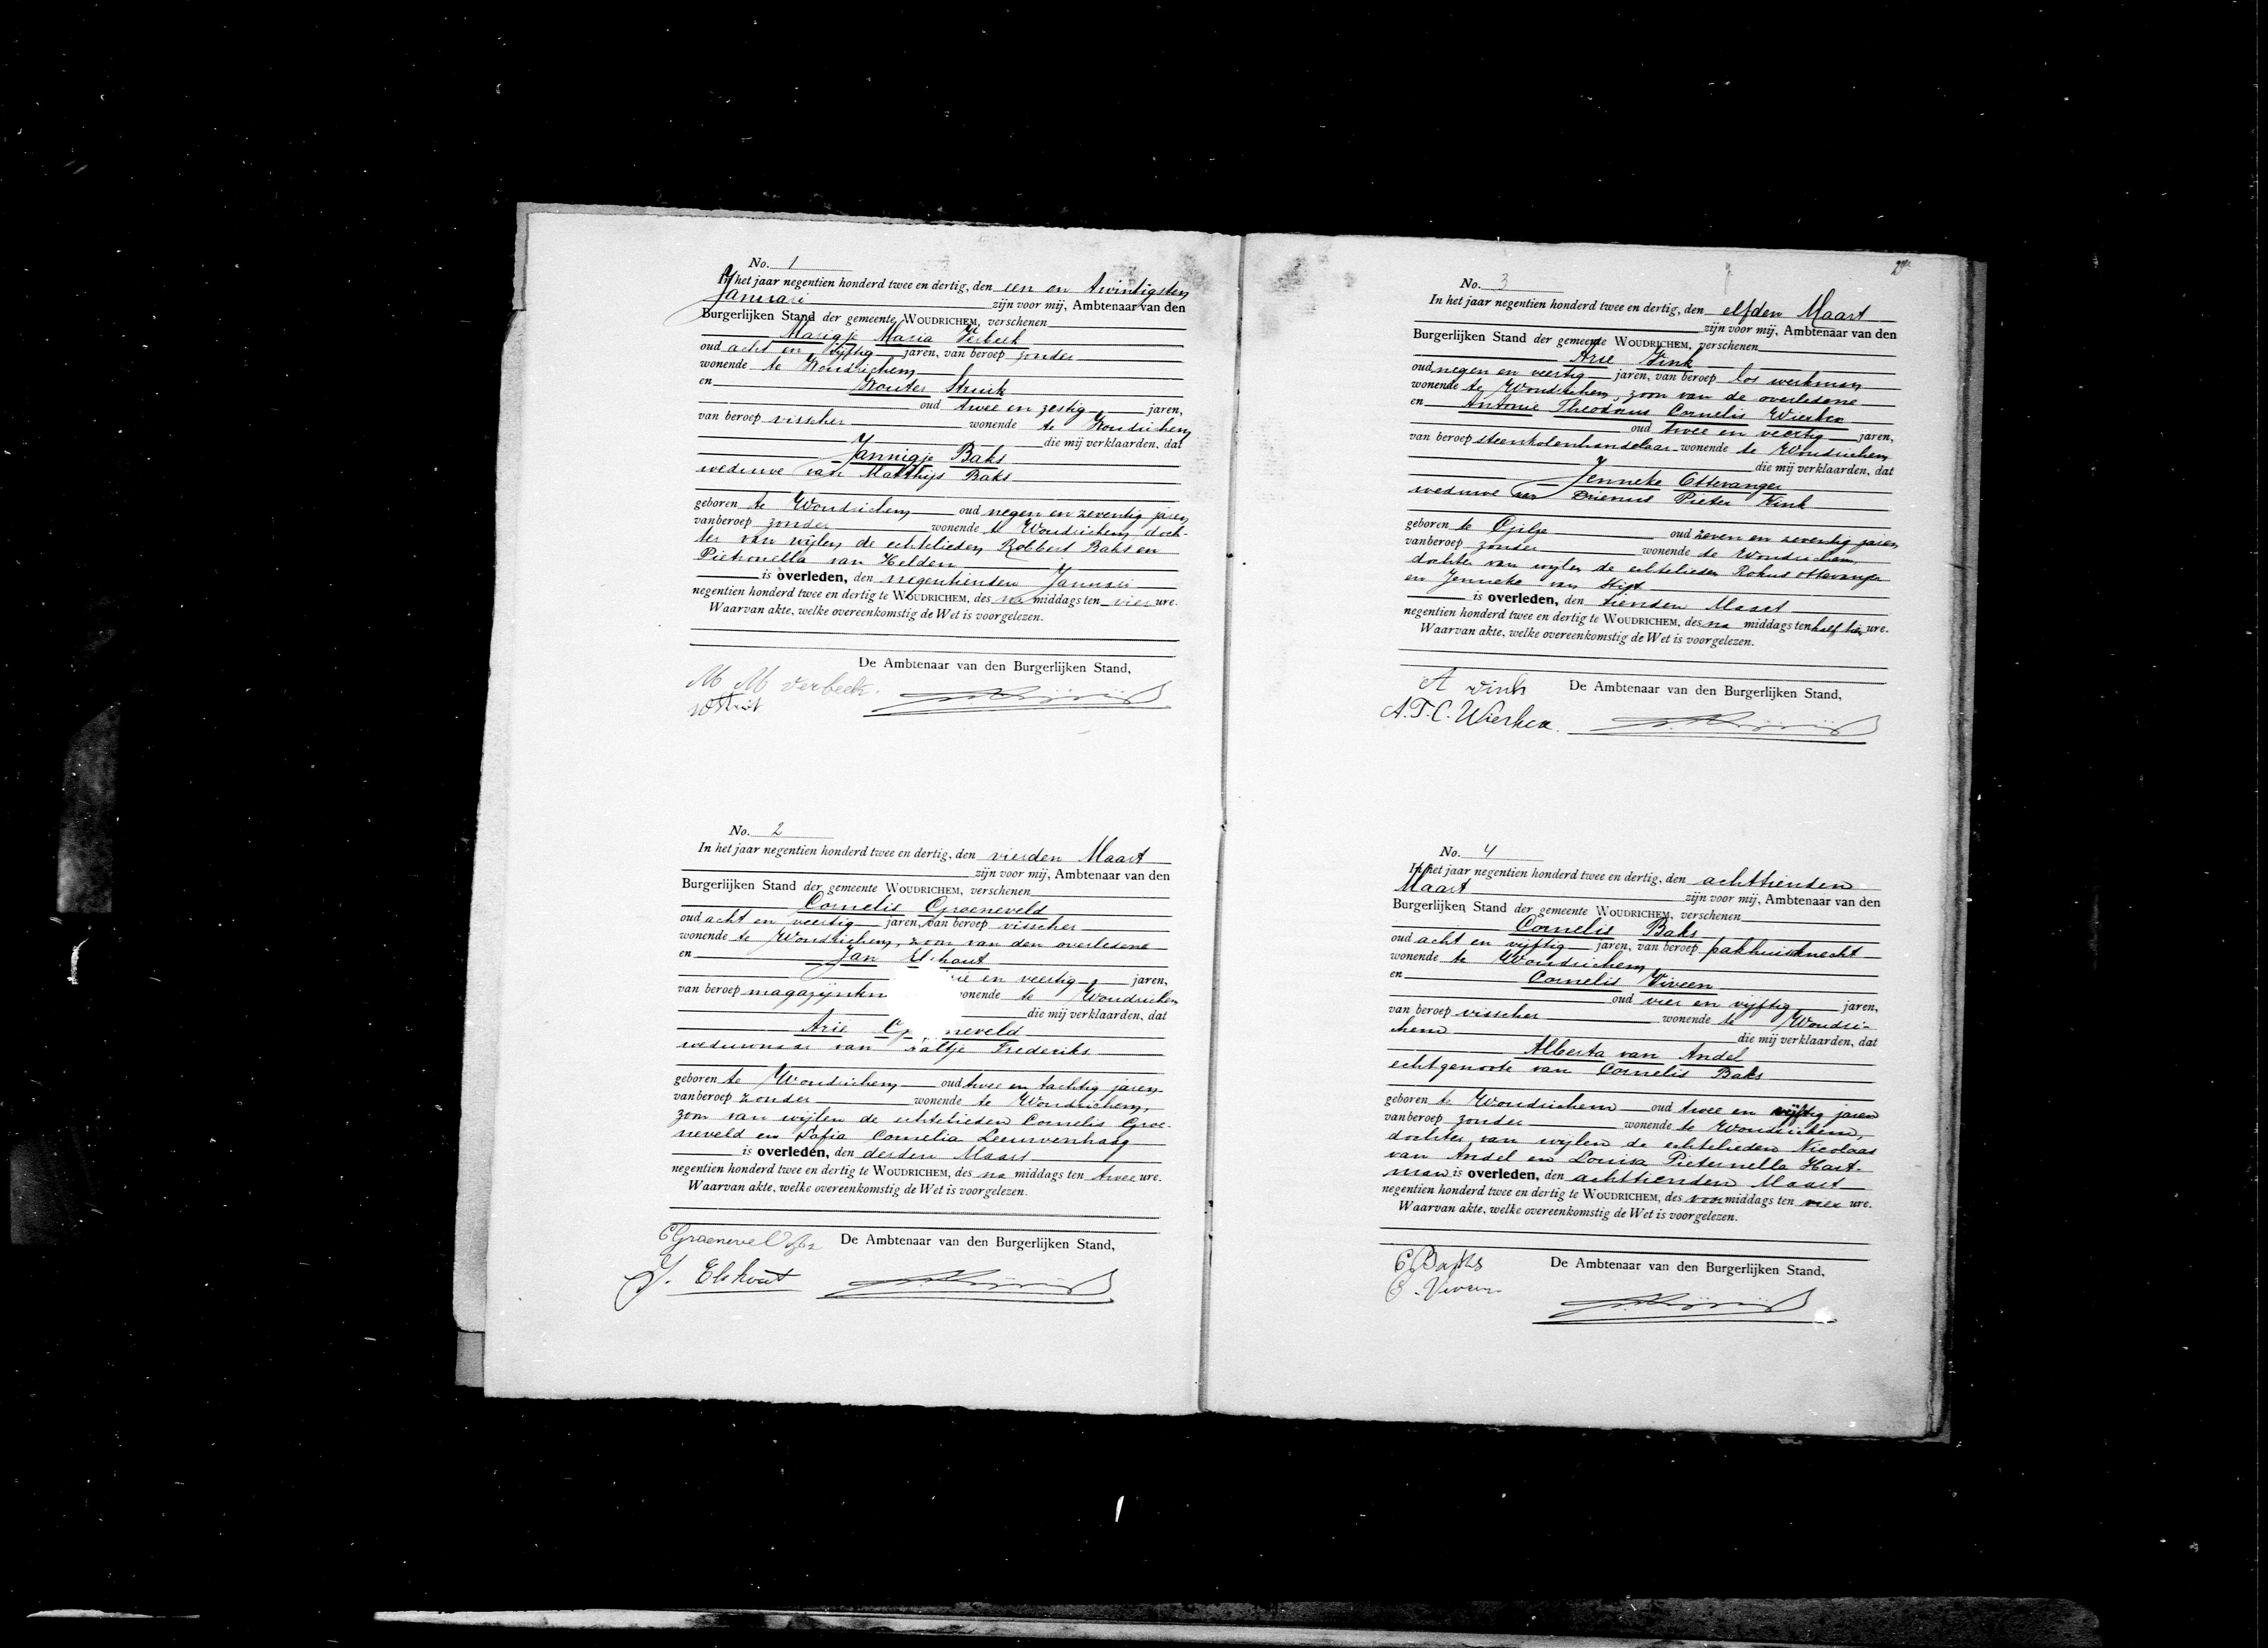 No. 1
In het jaar negentien honderd twee en dertig, den een en twintigsten
Januari zijn voor mij, Ambtenaar van den
Burgerlijken Stand der gemeente WOUDRICHEM, verschenen
Marigje Maria Verbeek
oud acht en vijftig jaren, van beroep zonder
wonende te Woudrichem
en Wouter Struik
oud twee en zestig jaren,
van beroep visscher wonende te Woudrichem
die mij verklaarden, dat
Jannigje Baks
weduwe van Matthijs Baks
geboren te Woudrichem oud negen en zeventig jaren
van beroep zonder wonende te Woudrichem, doch-
ter van wijlen de echtelieden Robbert Baks en
Pietronella van Helden
is overleden, den negentienden Januari
negentien honderd twee en dertig te WOUDRICHEM, des na middags ten vier ure.
Waarvan akte, welke overeenkomstig de Wet is voorgelezen.
De Ambtenaar van den Burgerlijken Stand,
M M Verbeek.
No. 2
In het jaar negentien honderd twee en dertig, den vierden Maart
zijn voor mij, Ambtenaar van den
Burgerlijken Stand der gemeente WOUDRICHEM, verschenen
Cornelis Groeneveld
oud acht en veertig jaren, van beroep visscher
wonende te Woudrichem, zoon van den overledene
en Jan Elshout
en veertig jaren,
van beroep magazijnkn wonende te Woudrichem
die mij verklaarden, dat
Arie G neveld
weduwnaar van Frederiks
geboren te Woudrichem oud twee en tachtig jaren
van beroep zonder wonende te Woudrichem,
zoon van wijlen de echtelieden Cornelis Groe-
neveld en Sofia Cornelia Leeuwenhaag
is overleden, den derden Maart
negentien honderd twee en dertig te WOUDRICHEM, des na middags ten twee ure.
Waarvan akte, welke overeenkomstig de Wet is voorgelezen.
De Ambtenaar van den Burgerlijken Stand,
C Groeneveld
J. Elshout
No. 3
In het jaar negentien honderd twee en dertig, den elfden Maart
zijn voor mij, Ambtenaar van den
Burgerlijken Stand der gemeente WOUDRICHEM, verschenen
Arie Vink
oud negen en veertig jaren, van beroep los werkman
wonende te Woudrichem, zoon van de overledene
en Antonie Theodorus Cornelis Wierken
oud twee en veertig jaren,
van beroep steenkolenhandelaar wonende te Woudrichem
die mij verklaarden, dat
Jenneke Ottevanger
weduwe van Drienus Pieter Vink
geboren te Gilze oud zeven en zeventig jaren
van beroep zonder wonende te Woudrichem,
dochter van wijlen de echtelieden Rokus Ottevanger
en Jenneke van
is overleden, den tienden Maart
negentien honderd twee en dertig te WOUDRICHEM, des na middags ten half tien ure.
Waarvan akte, welke overeenkomstig de Wet is voorgelezen.
De Ambtenaar van den Burgerlijken Stand,
A Vink
A. T. C. Wierken.
No. 4
In het jaar negentien honderd twee en dertig, den achttienden
Maart zijn voor mij, Ambtenaar van den
Burgerlijken Stand der gemeente WOUDRICHEM, verschenen
Cornelis Baks
oud acht en vijftig jaren, van beroep pakhuisknecht
wonende te Woudrichem
en Cornelis Viveen
oud vier en vijftig jaren,
van beroep visscher wonende te Woudri-
chem die mij verklaarden, dat
Alberta van Andel
echtgenoote van Cornelis Baks
geboren te Woudrichem oud twee en vijftig jaren
van beroep zonder wonende te Woudrichem,
dochter van wijlen de echtelieden Nicolaas
van Andel en Louisa Pieternella Hart-
man is overleden, den achttienden Maart
negentien honderd twee en dertig te WOUDRICHEM, des voormiddags ten vier ure.
Waarvan akte, welke overeenkomstig de Wet is voorgelezen.
De Ambtenaar van den Burgerlijken Stand,
C Baks
C. Viveen